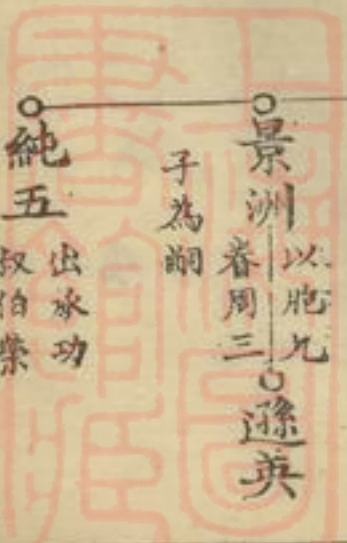 景洲
以胞兄
春周三
子為嗣
遜英
純五
出承功
叔伯榮